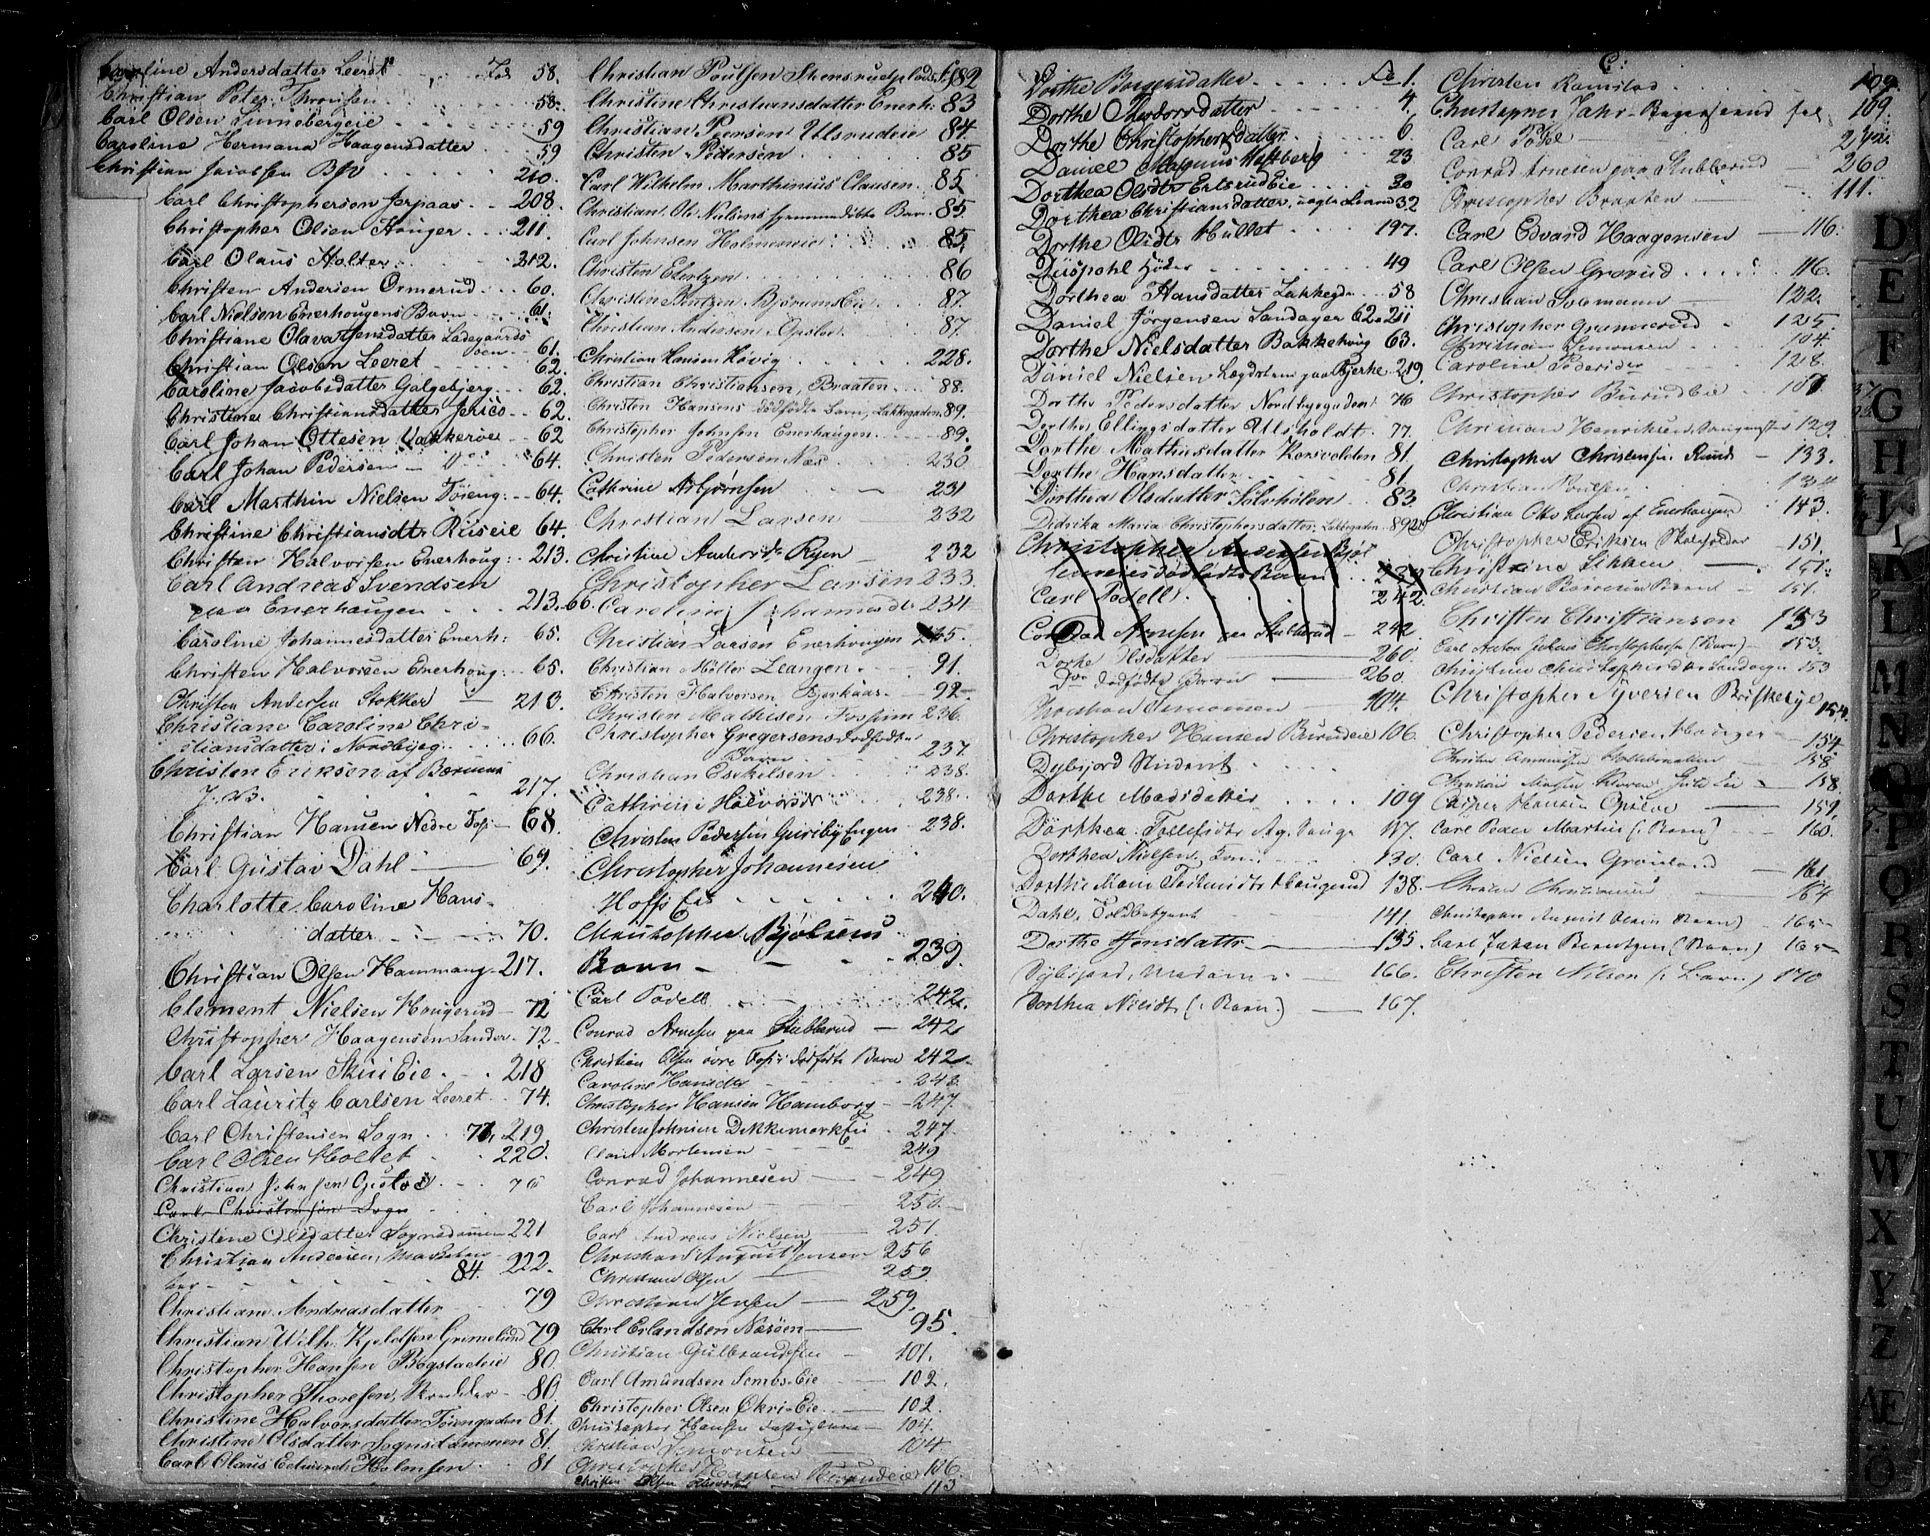 Caroline Andersdatter Leeret Fol 58.
Christian Peter Thronsen 58.
Carl Olsen 59
Caroline Hermana Haagensdatter 59
Christian Jacobsen 210.
Carl Christophersen Jerpaas 208.
Christopher Olsen Houger 211.
Carl Olaus Holter 212.
Christen Andersen Ormerud 60.
Carl Nielsen Enerhougens Barn 61.
Christiane Olava Jensdatter Ladegaards
øen 61.
Christian Olsen Leeret 62.
Caroline Jacobsdatter Galgebjerg 62.
Christine Christiansdatter Jerico 62.
Carl Johan Ottesen Vækkerøe 62
Carl Johan Pedersen 64.
Carl Marthin Nielsen Tøieng: 64.
Christine Christiansdtr Riiseie 64.
Christian Halvorsen Enerhoug: 213.
Carl Andreas Svendsen
paa Enerhaugen 213.
Caroline Johannesdatter Enerh: 65.
Christen Halvorsen Enerhoug: 65.
Christen Andersen Stokker 213.
Christiane Caroline Chri-
stiansdatter i Nordbyeg: 66.
Christen Eriksen af Bærums
217.
Christian Hansen Nedre Fos 68.
Carl Gustav Dahl 69.
Charlotte Caroline Hans-
datter 70.
Christian Olsen Hammang 217.
Clement Nielsen Hougerud 72
Christopher Haagensen Sander 72
Carl Larsen Skui Eie 218
Carl Lauritz Carlsen Leeret 74.
Carl Christensen Sogn 77, 219
Carl Olsen Holtet 220.
Christian Johnsen 76
Carl Christensen Sogn
Christine Olsdatter Sognsdammen 221
Christian Andersen,
84. 222.
Christiane Andreasdatter 79
Christian Wilh. Kjeldsen Grimelund 79
Christopher Hansen Bogstadeie 80
Christopher Thoresen, 80
Christine Halvorsdatter Tøiengaden 81.
Christine Olsdatter Sognsdammen 81.
Carl Olaus Edvard Holmsen 81
Christian Poulsen Stensrudplads f. 82
Christine Christiansdatter Enerh: 83
Christian Peersen Ulsrudeie 84
Christen Pedersen 85
Carl Wilhelm Marthinius Clausen 85
Christian Ols Nielsens dødfødte Barn 85
Carl Johnsen Holmeneie 85
Christen Edertzen 86
Christin Bjørums Eie 87.
Christian Andersen Opsloe 87.
Christian Hansen Høvig 228.
Christian Christiansen, Braaten 88.
Christen Hansens dødfødte Barn, Lakkegaden 89.
Christopher Johnsen Enerhaugen 89.
Christen Pedersen Næs 230
Cathrine Asbjørnsen 231
Christian Larsen 232
Christine Andersdr Ryen 232
Christopher Larsen 233.
Caroline Johannesdr 234
Christian Larsen Enerhougen 235.
Christian Møller Leangen 91.
Christen Halvorsen Bjerkaas 92
Christen Mathisen Fossum 236.
Christopher Gregersens dødfødte
Barn 237.
Christian Eskelsen 238.
Cathrine Halvorsdr 238.
Christen Pedersen Guribÿ Engen 238.
Christopher Johannesen
Hoffs Eie 240.
Christopher Bjølsens
Barn 239.
Carl Podell 242.
Conrad Arnesen paa Stubberud 242
Christian Olsen øvre Fos: dødfødte Barn 242
Caroline Hansdtr 243.
Christopher Hansen Hamborg 247.
Christen Johnsen DikkemarkEie 247.
Mortensen 249
Conrad Johannesen 249
Carl Johannesen 250.
Carl Andreas Nielsen 251
Christian August Jensen 256
Christian Olsen 259.
Christian Jensen 259.
Carl Erlandsen Næsøen 95.
Christian Gulbrandsen 101.
Carl Amundsen SemsEie 102.
Christopher Olsen Økri Eie 102.
Christopher Hansen 104.
Christian Simonsen 104
Christopher Hansen Burudeie 106.
Christen Olsen 113
Dorthe Borgersdatter Fo 1.
Dorthe Theodorsdatter 4.
Dorthe Christophersdatter 6.
Daniel Magnus Heftberg 23
Dorthea Olsdtr Ertsrud Eie 30
Dorthea Christiansdatter, 32
Dorthe Olsdtr Hullet 197.
49
Dorthea Hansdatter Lakkegdn 58
Daniel Jørgensen Sandager 62. 211
Dorthe Nielsdatter Bakkehoug 63.
Daniel Nielsen Lægdslem paa Bjerke 219.
Dorthe Pedersdatter Nordbyegaden 76
Dorthe Ellingsdatter Ulsholdt 77.
Dorthe Mathisdatter Korsvolden 81.
Dorthe Hansdatter 81
Dorthea Olsdatter Sølvholen 83
Didrika Maria Christophersdatter, Lakkegaden 89
Christopher Andersen Bjøl
senseies dødfødte Barn 239
Carl Podell 242.
Conrad Arnesen paa Stubberud 242
Dorthe Olsdatter 260
Do dødfødte Barn 260.
Christian Simonsen 104.
Christopher Hansen Burudeie 106
Dybfjord Student
Dorthe Madsdatter 109
Dorthea Tollefsdtr Ag. Houge 117.
Dorthea Nielsen 130.
Dorthe Marie Tostensdtr Hougerud 138.
Dahl, Toldbetjent 141.
Dorthe Jensdattr 155.
Dybfjord, Madam 166.
Dorthea Nilsdtr (: Barn.) 167.
C:
Christen Ramstad 109.
Christopher Jahr 109.
Carl Podel 242.
Conrad Arnesen paa Stubberud 260
Christopher Braaten 111.
Carl Edvard Haagensen 116.
Carl Olsen Grorud 116.
Christian Solemann 122.
Christopher Grønnerud 125.
Christian Simonsen 104
Caroline Pedersdr 128.
Christopher Burud Eie 107
Christian Henriksen 129.
Christopher Christensen Ruud 133.
Christian Poulsen 134
Christian Otto Larsen af Enerhaugen 143.
Christopher Eriksen Skoleholder 151.
Christine Likken 151.
Christian Børresen Barn 151.
Christen Christiansen 153
Carl Anton Julius Christophersen (Barn) 153.
Christine Christophersdr Sandvigen 153
Christopher Syversen Briskebye 154.
Christopher Pedersen Hauger 154.
Christen Amundsen 158
Christian Jensen 158.
Casper Hansen Opsloe 159.
Carl Peder Martin (: Barn) 160.
Carl Nielsen Grønland 161.
Christen Christiansen 164
Christopher August Olsen (Barn) 165
Carl Johan Berntzen (Barn) 165
Christen Nilsen (: Barn.) 170
D
E
F
G
H
I
K
L
M
N
O
P
Q
R
S
T
U
W
X
Y
Z
Æ
Ø